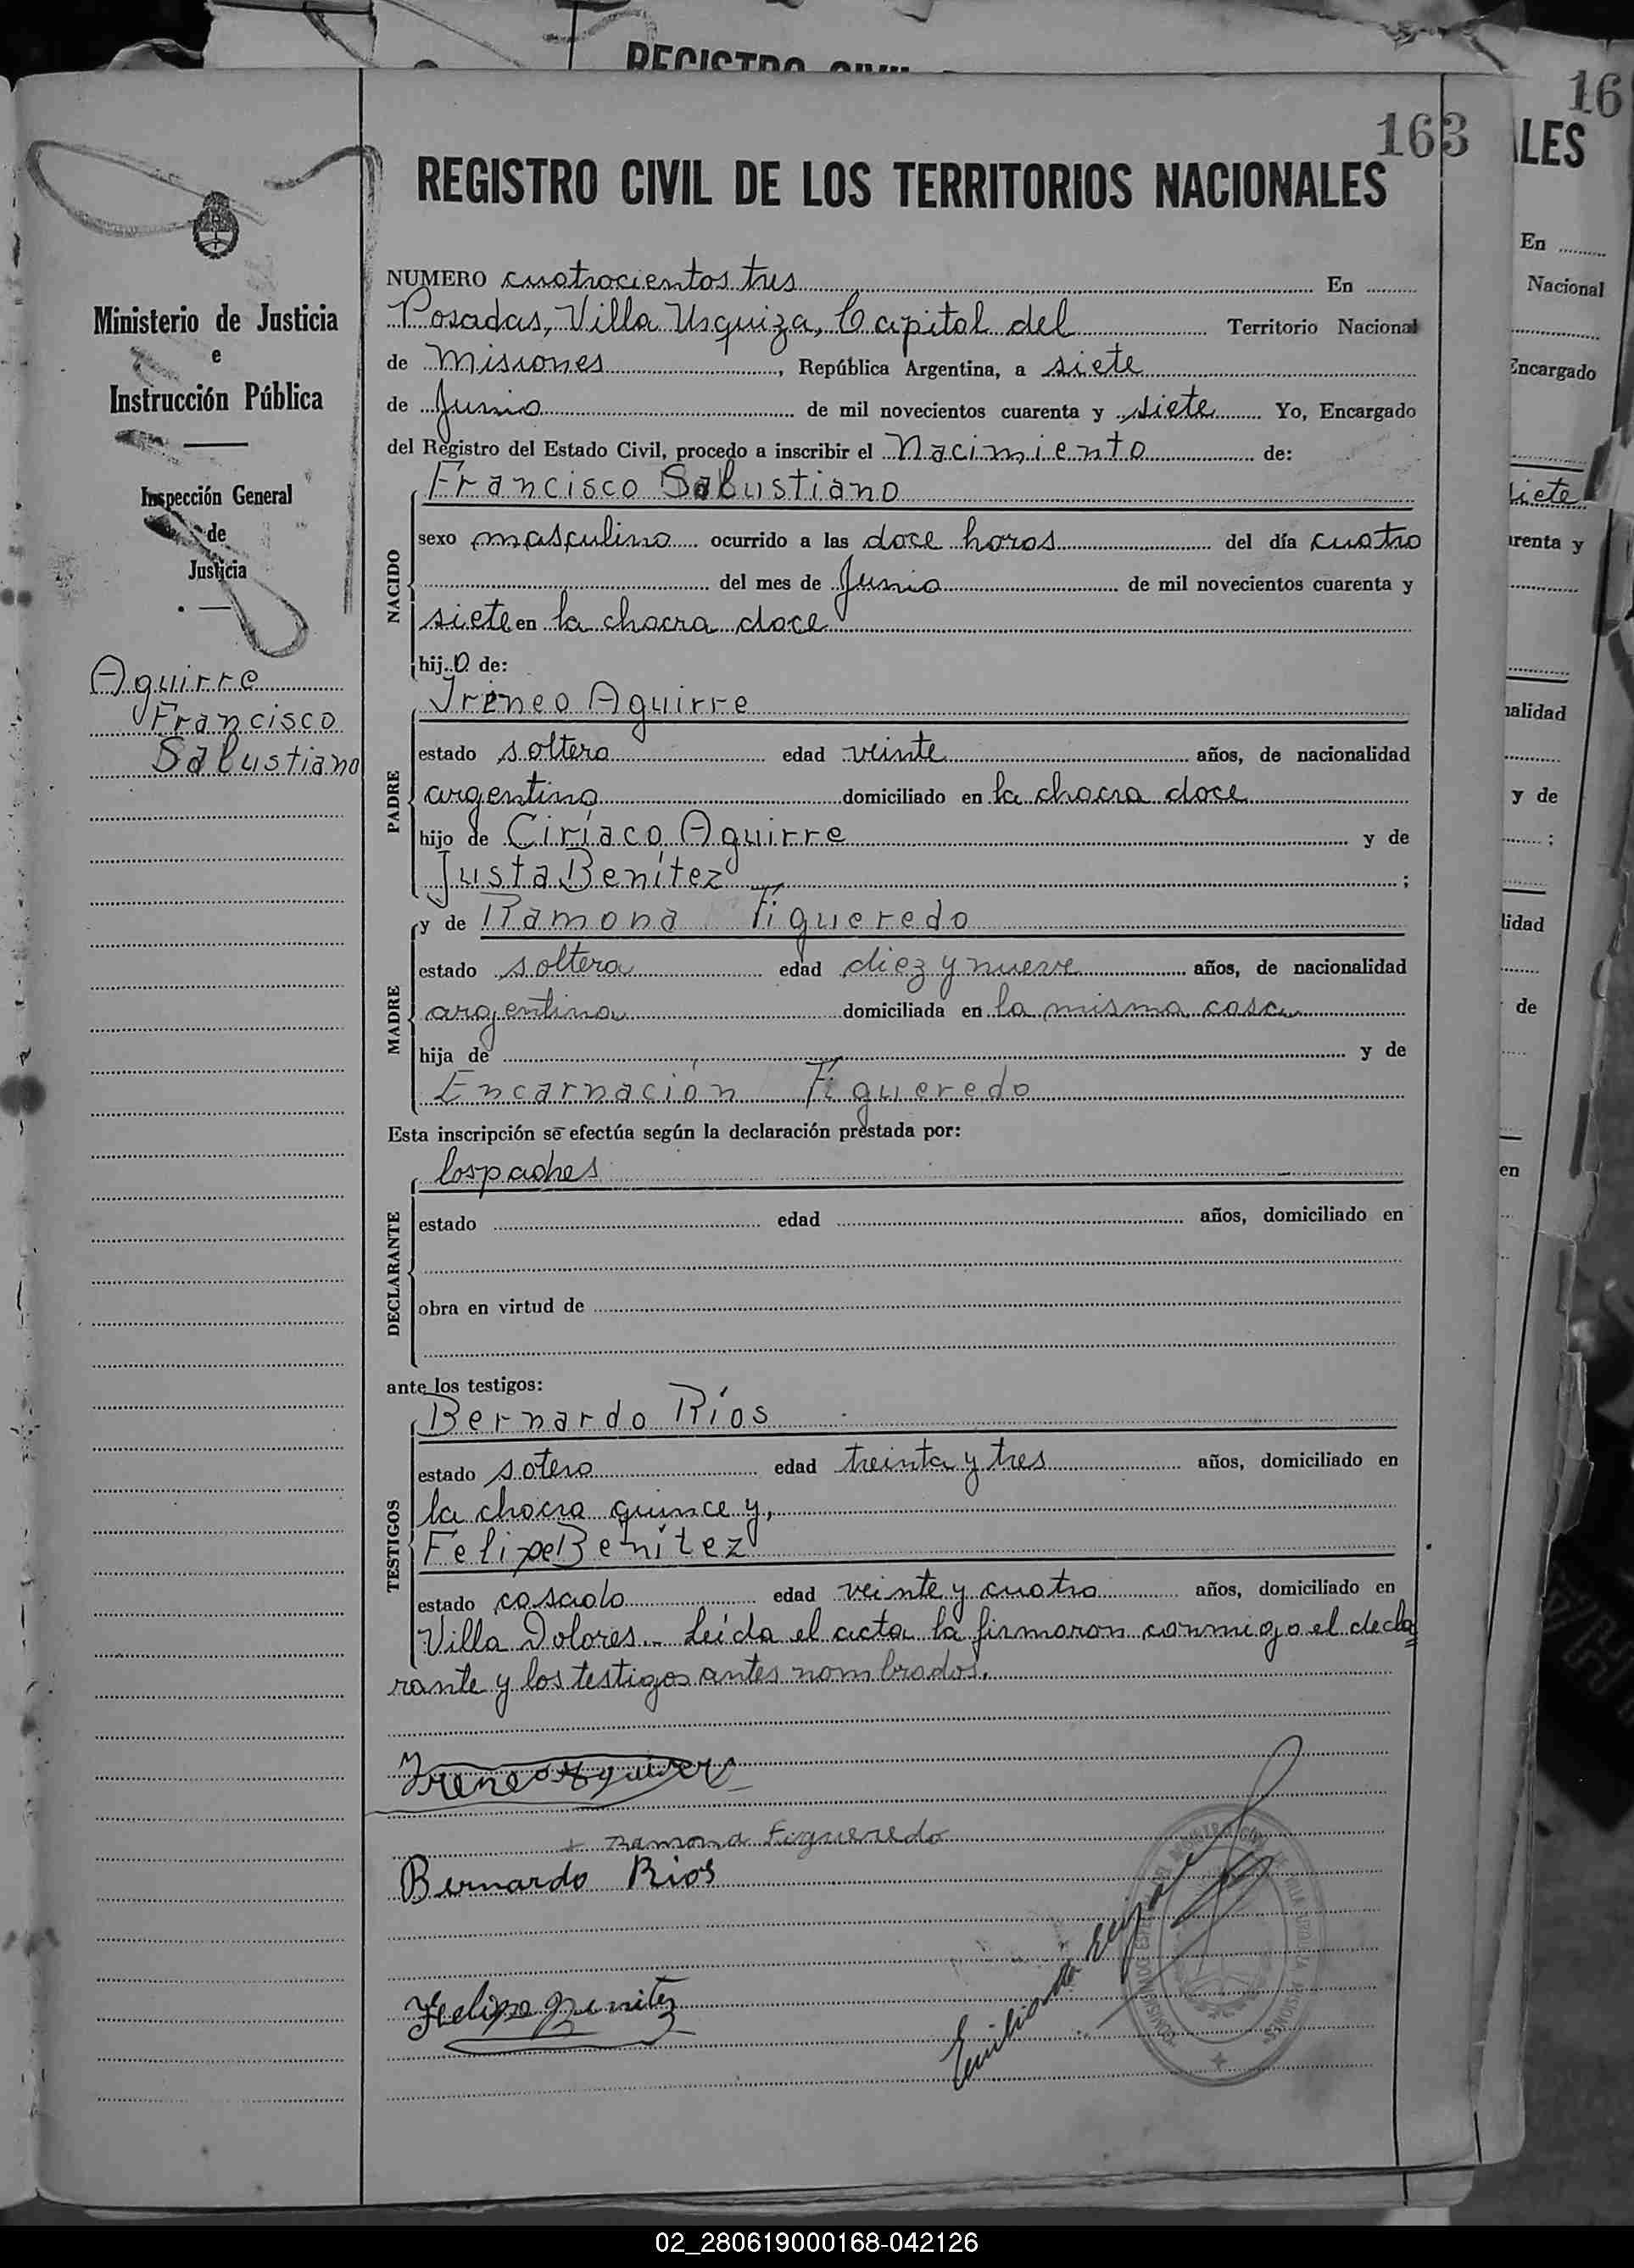 REGISTRO CIVIL
16
LES
163
REGISTRO CIVIL DE LOS TERRITORIOS NACIONALES
Ministerio de Justicia
e
Instrucción Pública
Inspección General
de
Justicia
Aguirre
Francisco
Salustiano
NUMERO cuatrocientos tres En
Posadas, Villa Urquiza, Capital del Territorio Nacional
de Misiones, República Argentina, a siete
de Junio de mil novecientos cuarenta y siete Yo, Encargado
del Registro del Estado Civil, procedo a inscribir el Nacimiento de:
NACIDO
Francisco Salustiano
sexo masculino ocurrido a las doce horas del día cuatro
del mes de Junio de mil novecientos cuarenta y
siete en la chacra doce
hijo de:
PADRE
Ireneo Aguirre
estado soltero edad veinte años, de nacionalidad
argentino domiciliado en la chacra doce
hijo de Ciríaco Aguirre y de
Justa Benítez ;
MADRE
y de Ramona Figueredo
estado soltera edad diez y nueve años, de nacionalidad
argentina domiciliada en la misma casa
hija de y de
Encarnación Figueredo
Esta inscripción se efectúa según la declaración prestada por:
DECLARANTE
los padres
estado edad años, domiciliado en
obra en virtud de
ante los testigos:
TESTIGOS
Bernardo Ríos
estado sotero edad treinta y tres años, domiciliado en
la chacra quince y,
Felipe Benítez
estado casado edad veinte y cuatro años, domiciliado en
Villa Dolores.- Leída el acta la firmaron conmigo el decla
rante y los testigos antes nombrados.
Ireneo Aguirre
+ Ramona Figueredo
Bernardo Rios
Felipe Benitez
Emiliano
En
Nacional
Encargado
siete
renta y
nalidad
y de
;
lidad
de
en
02_280619000168-042126